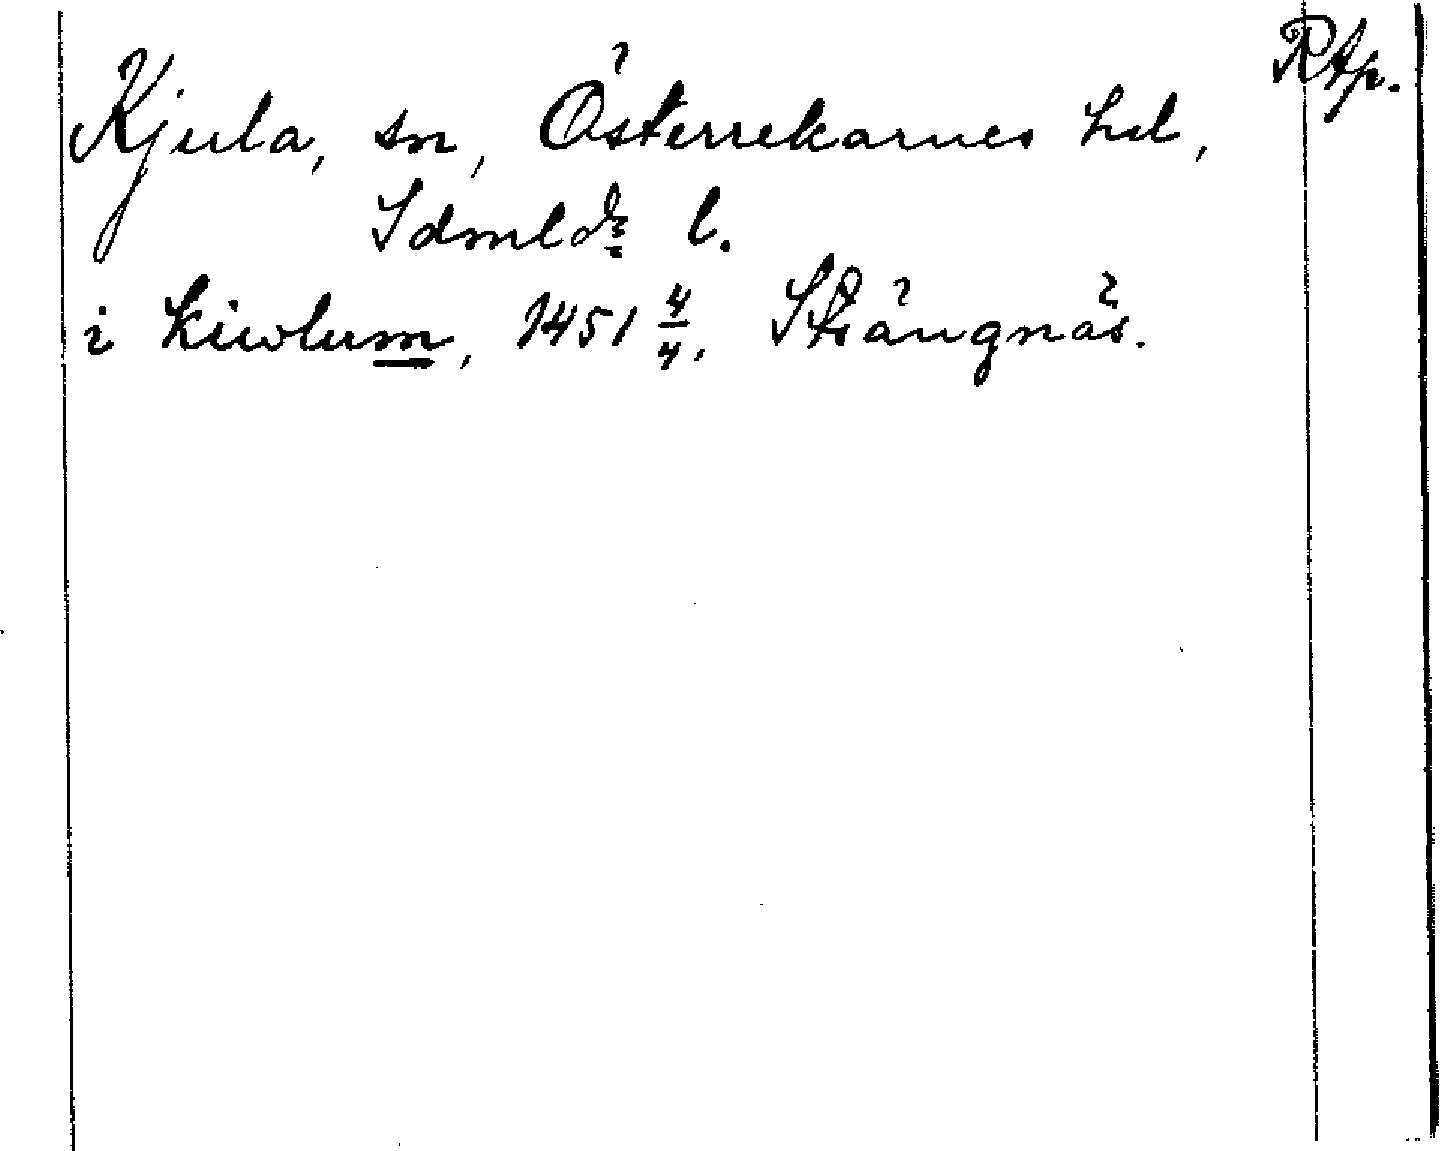 Rtp.
Kjula, sn, Österrekarnes hd,
Sdmlds l.
i kiwlum, 1451 4/4, Strängnäs.